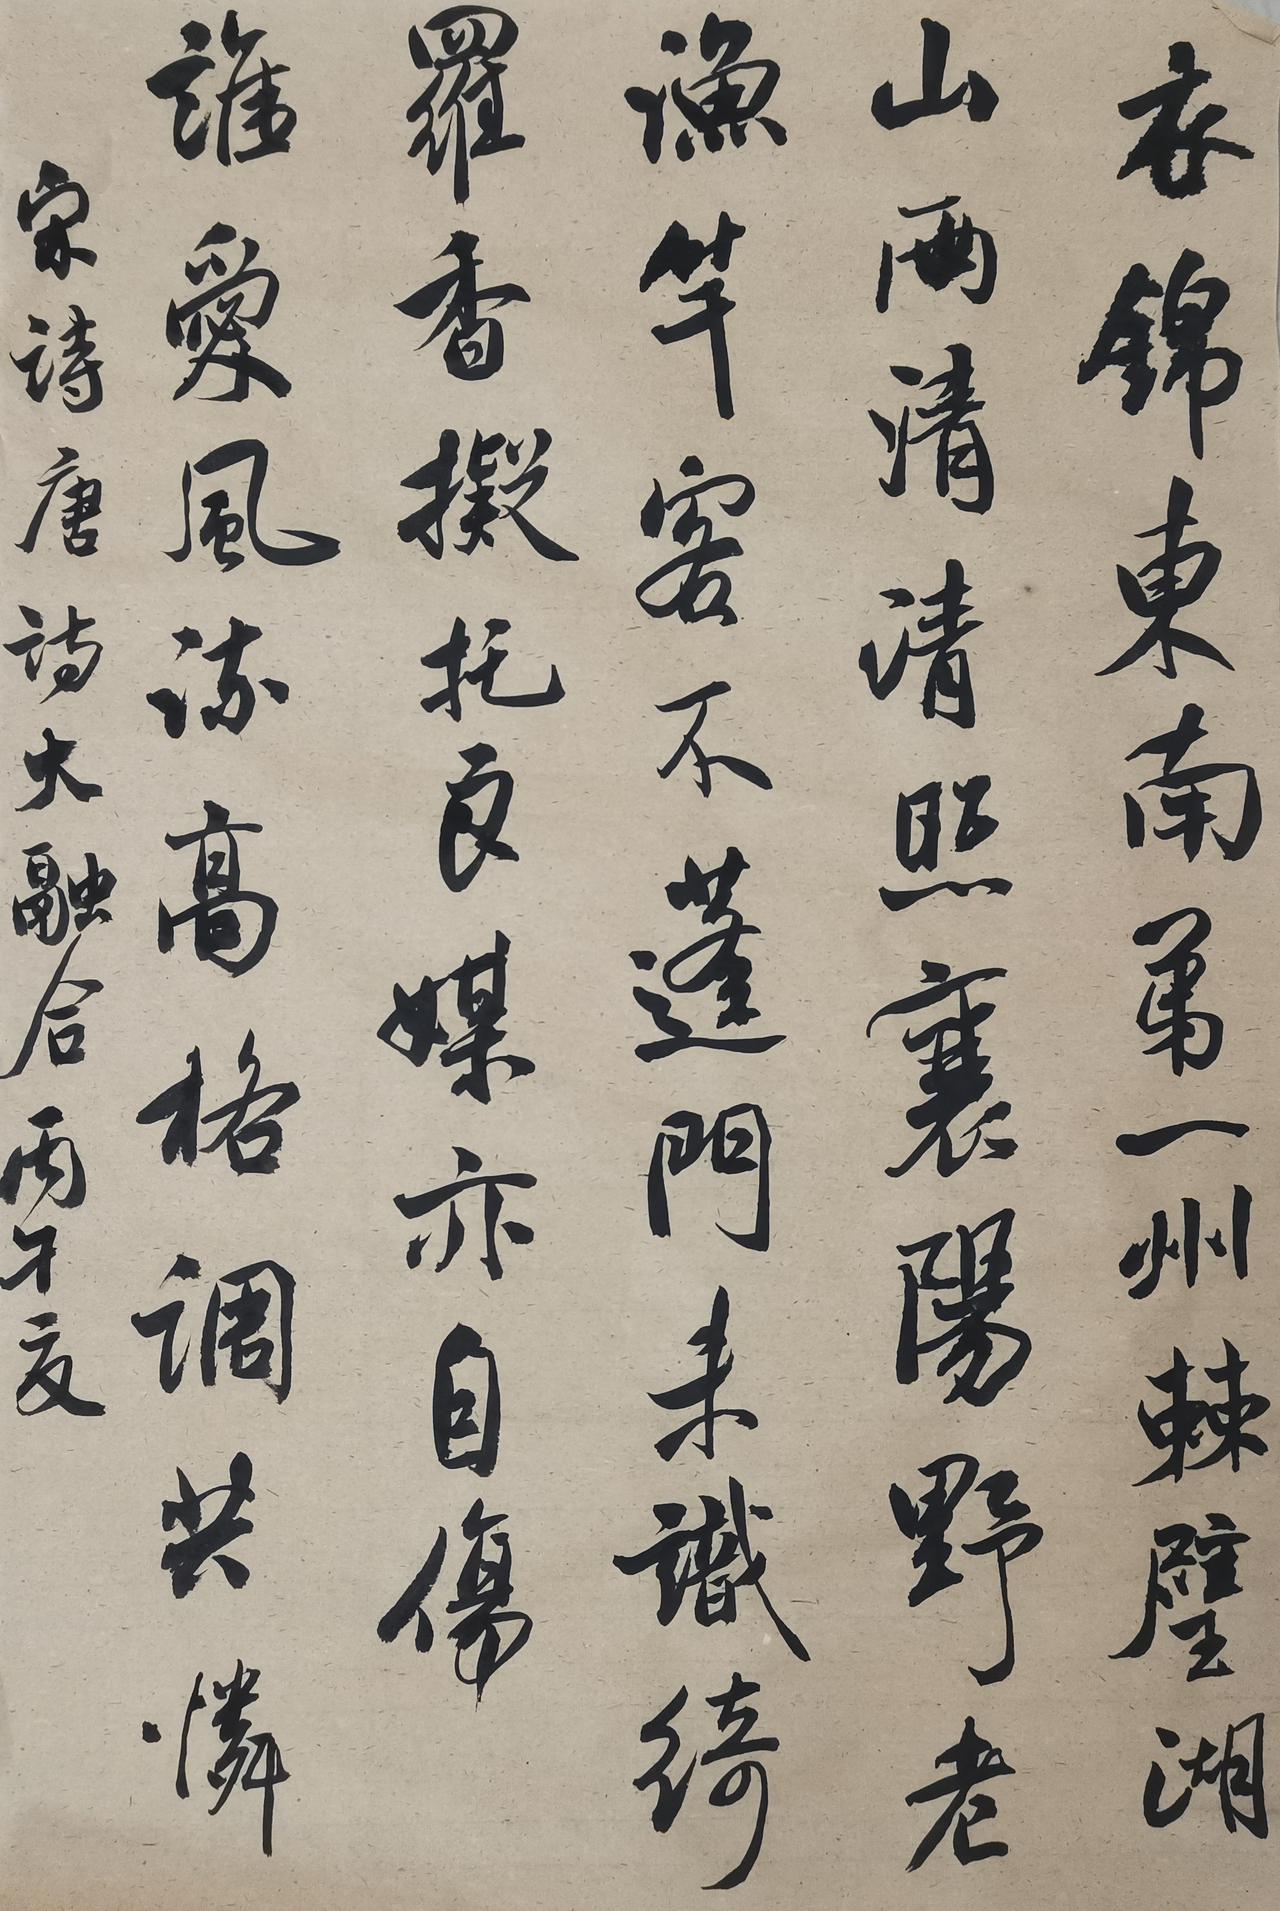 衣錦東南弟一州棘璧湖
山兩清清照襄陽野老
漁竿客不蓬門未識綺
羅香擬托良媒亦自傷
誰愛風流高格調共憐
宋詩唐詩大融合丙午夏